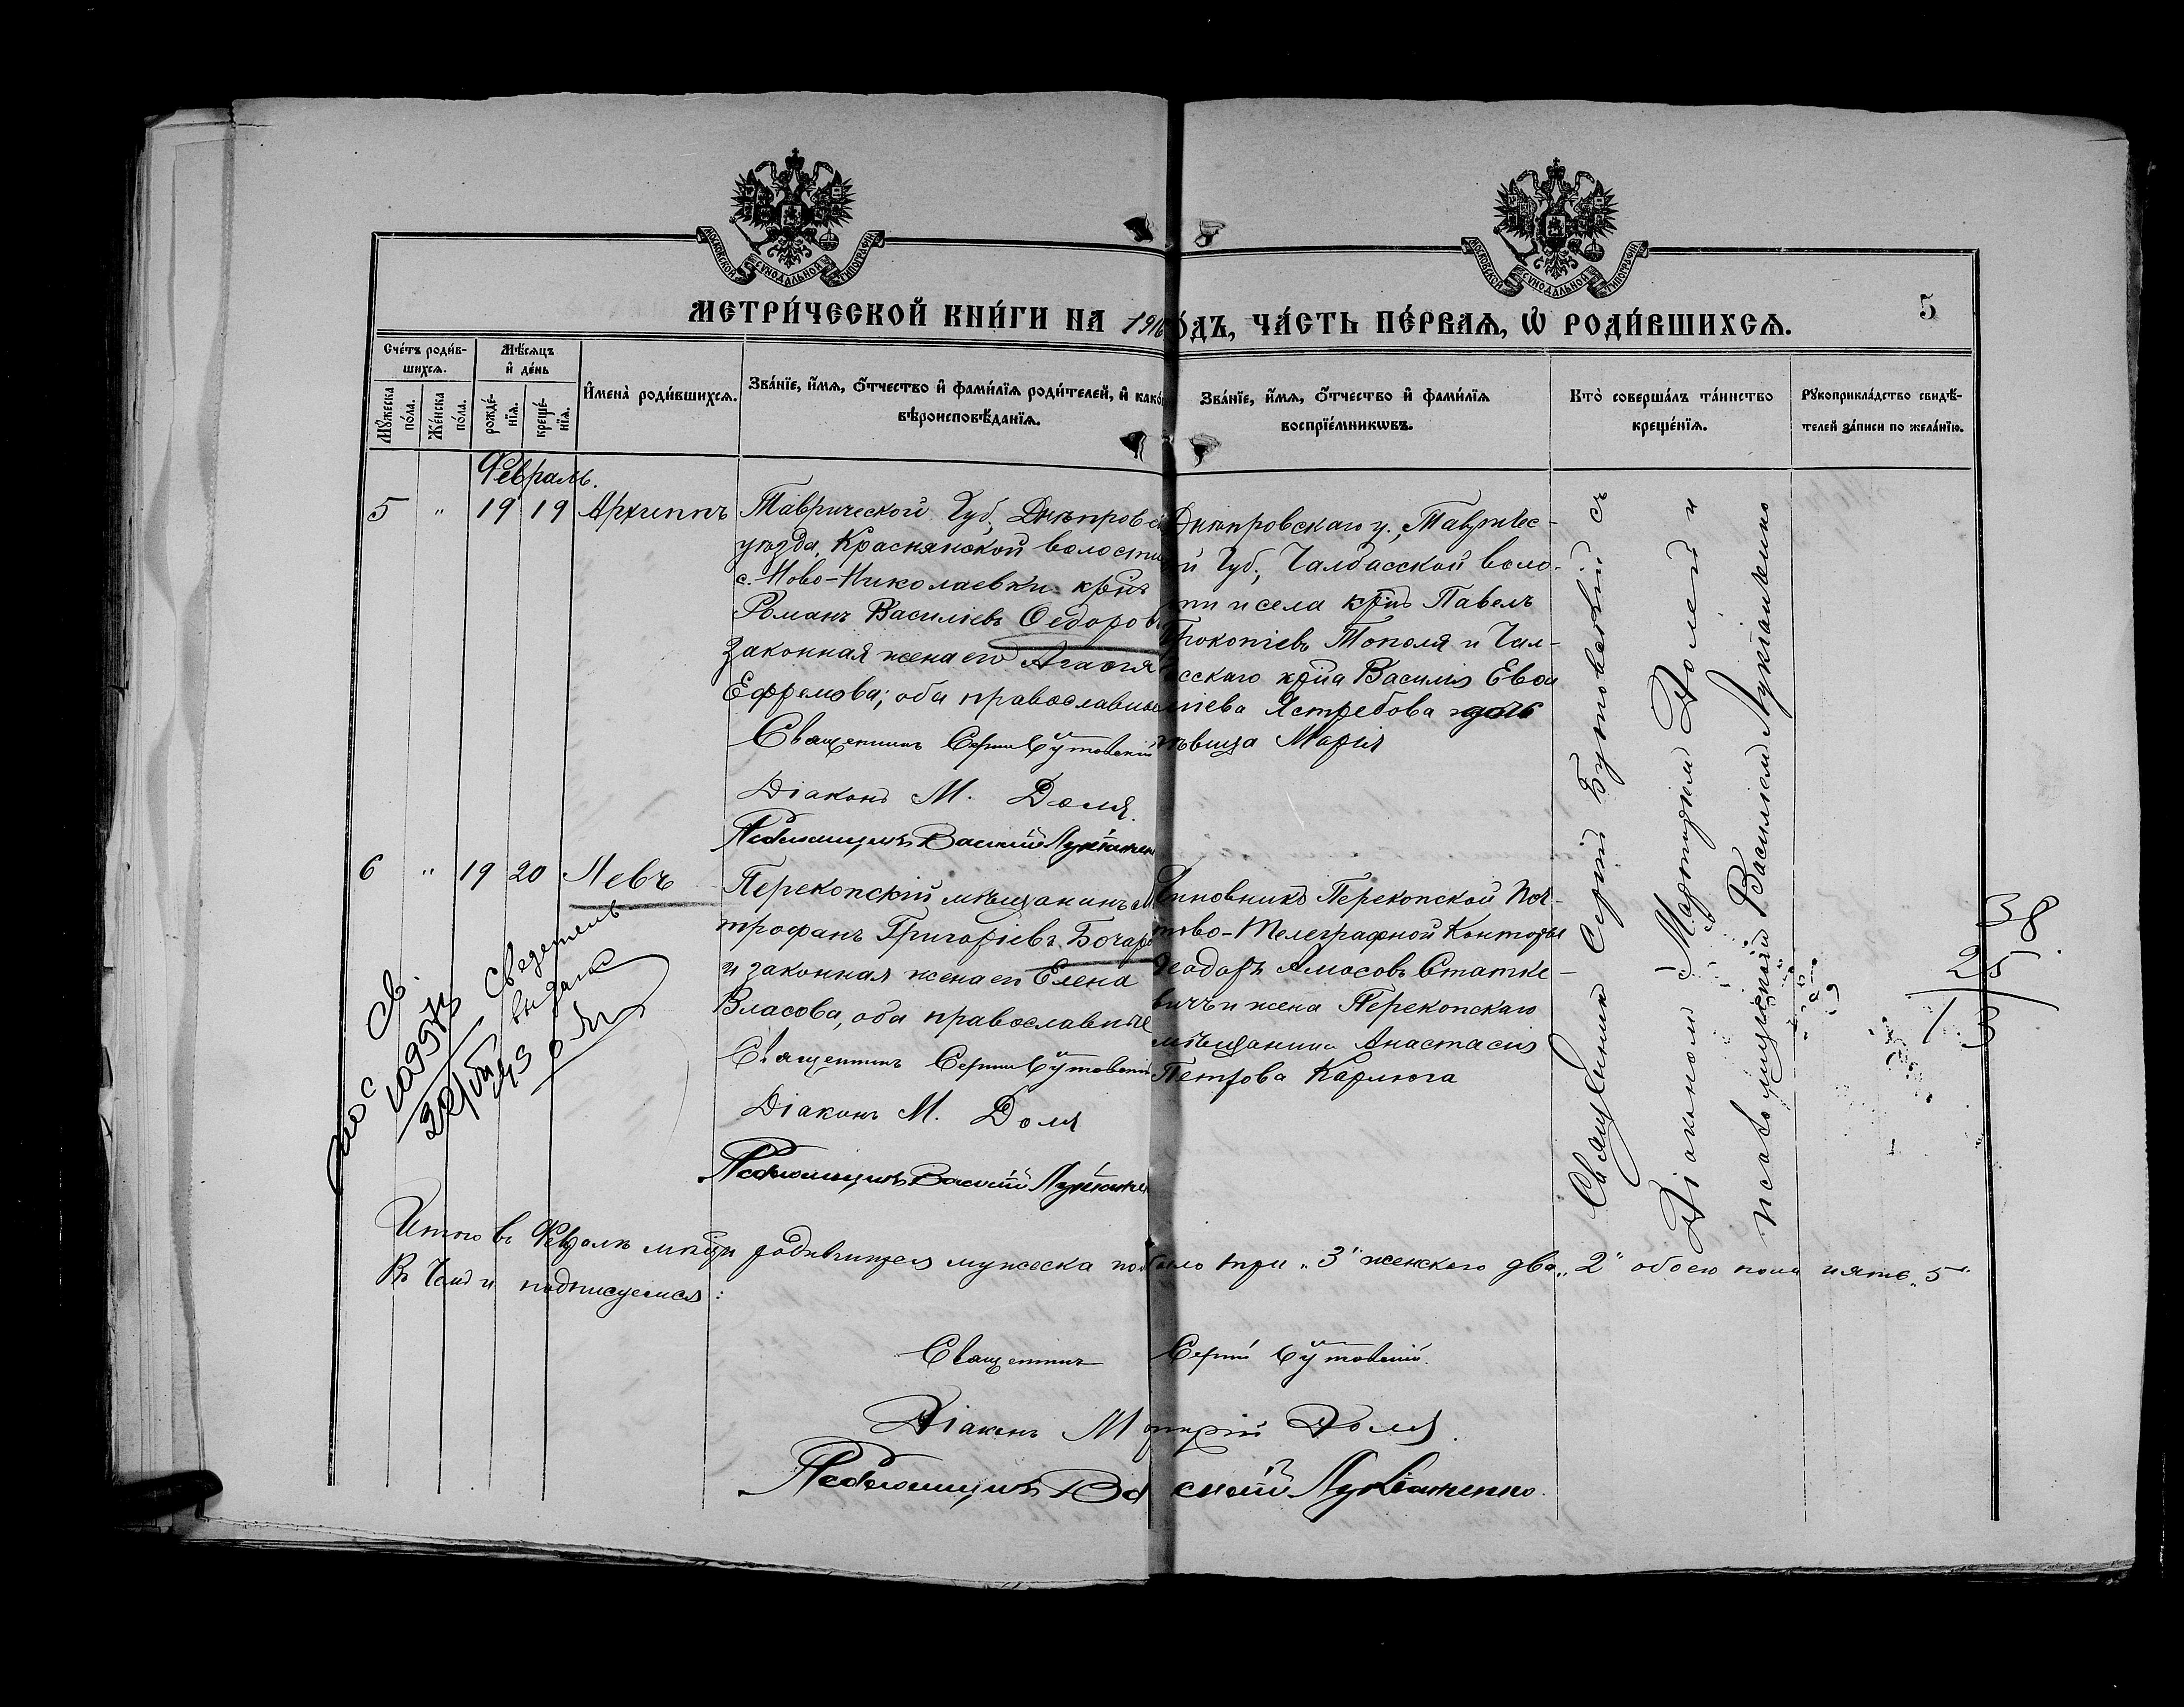 МОСКОВСКОЙ СѴНОДАЛЬНОЙ ТИПОГРАФІИ
МОСКОВСКОЙ СѴНОДАЛЬНОЙ ТИПОГРАФІИ
5
МЕТРИ́ЧЕСКОЙ КНИ́ГИ НА 1916 О́ДЪ, ЧА́СТЬ ПЕ́РВАѦ, Ѡ҆ РОДИ́ВШИХСѦ.
Сче́тъ роди́в-
шихсѧ.
Мꙋ́жеска по́ла.
Же́нска по́ла.
Мѣ́сѧцъ
и҆ де́нь
рожде́-
нїѧ.
креще́-
нїѧ.
И҆мена̀ роди́вшихсѧ.
Зва́нїе, и҆́мѧ, ѻ҆́тчество и҆ фами́лїѧ роди́телей, и҆ како́
вѣроисповѣ́данїѧ.
Зва́нїе, и҆́мѧ, ѻ҆́тчество и҆ фами́лїѧ
воспрїе́мникѡвъ.
Кто̀ соверша́лъ та́инство
креще́нїѧ.
Рꙋкоприкла́дство свидѣ́-
телей за́писи по жела́нїю.
Февраль.
5 " 19 19 Архиппъ
Таврической Губ., Днѣпров
уѣзда, Краснянской волости
с. Ново-Николаевки крнъ
Романъ Василіевъ Ѳедоров
законная жена его Агаѳія
Ефремова; оба православные
Священникъ Сергій Бутовскій
Діаконъ М. Доля.
Псаломщикъ Василій Лукіянен
Днѣпровскаго у., Тавричес-
й Губ., Чалбасской воло-
сти и села крнъ Павелъ
Прокопіевъ Тополя и Чал-
сскаго крна Василія Ев
піева Ястребова
ѣвица Марія
Священник Сергій Бутовскій съ
Діакономъ Мартиріем Долей и
псаломщикомъ Василіем Лукіяненко
6 " 19 20 Левъ
Перекопскій мѣщанинъ М
трофанъ Григоріевъ Бочаро
и законная жена его Елена
Власова, оба православные
Священникъ Сергій Бутовскій
Діаконъ М. Доля
Псаломщикъ Василій Лукіянен
Чиновникъ Перекопской Поч-
тово-Телеграфной Конторы
Ѳеодоръ Амосовъ Статке-
вичъ и жена Перекопскаго
мѣщанина Анастасія
Петрова Карлюга
Св.
Сведетель
выдана
38
25
13
Итого въ Февралѣ мѣсяцѣ родившихся мужеска пол было три „3" женского два „2" обоего пола пять „5"
Въ чемъ и подписуемся:
Священникъ Сергій Бутовскій.
Діаконъ Мартирій Доля.
Псаломщикъ Василій Лукіяненко.